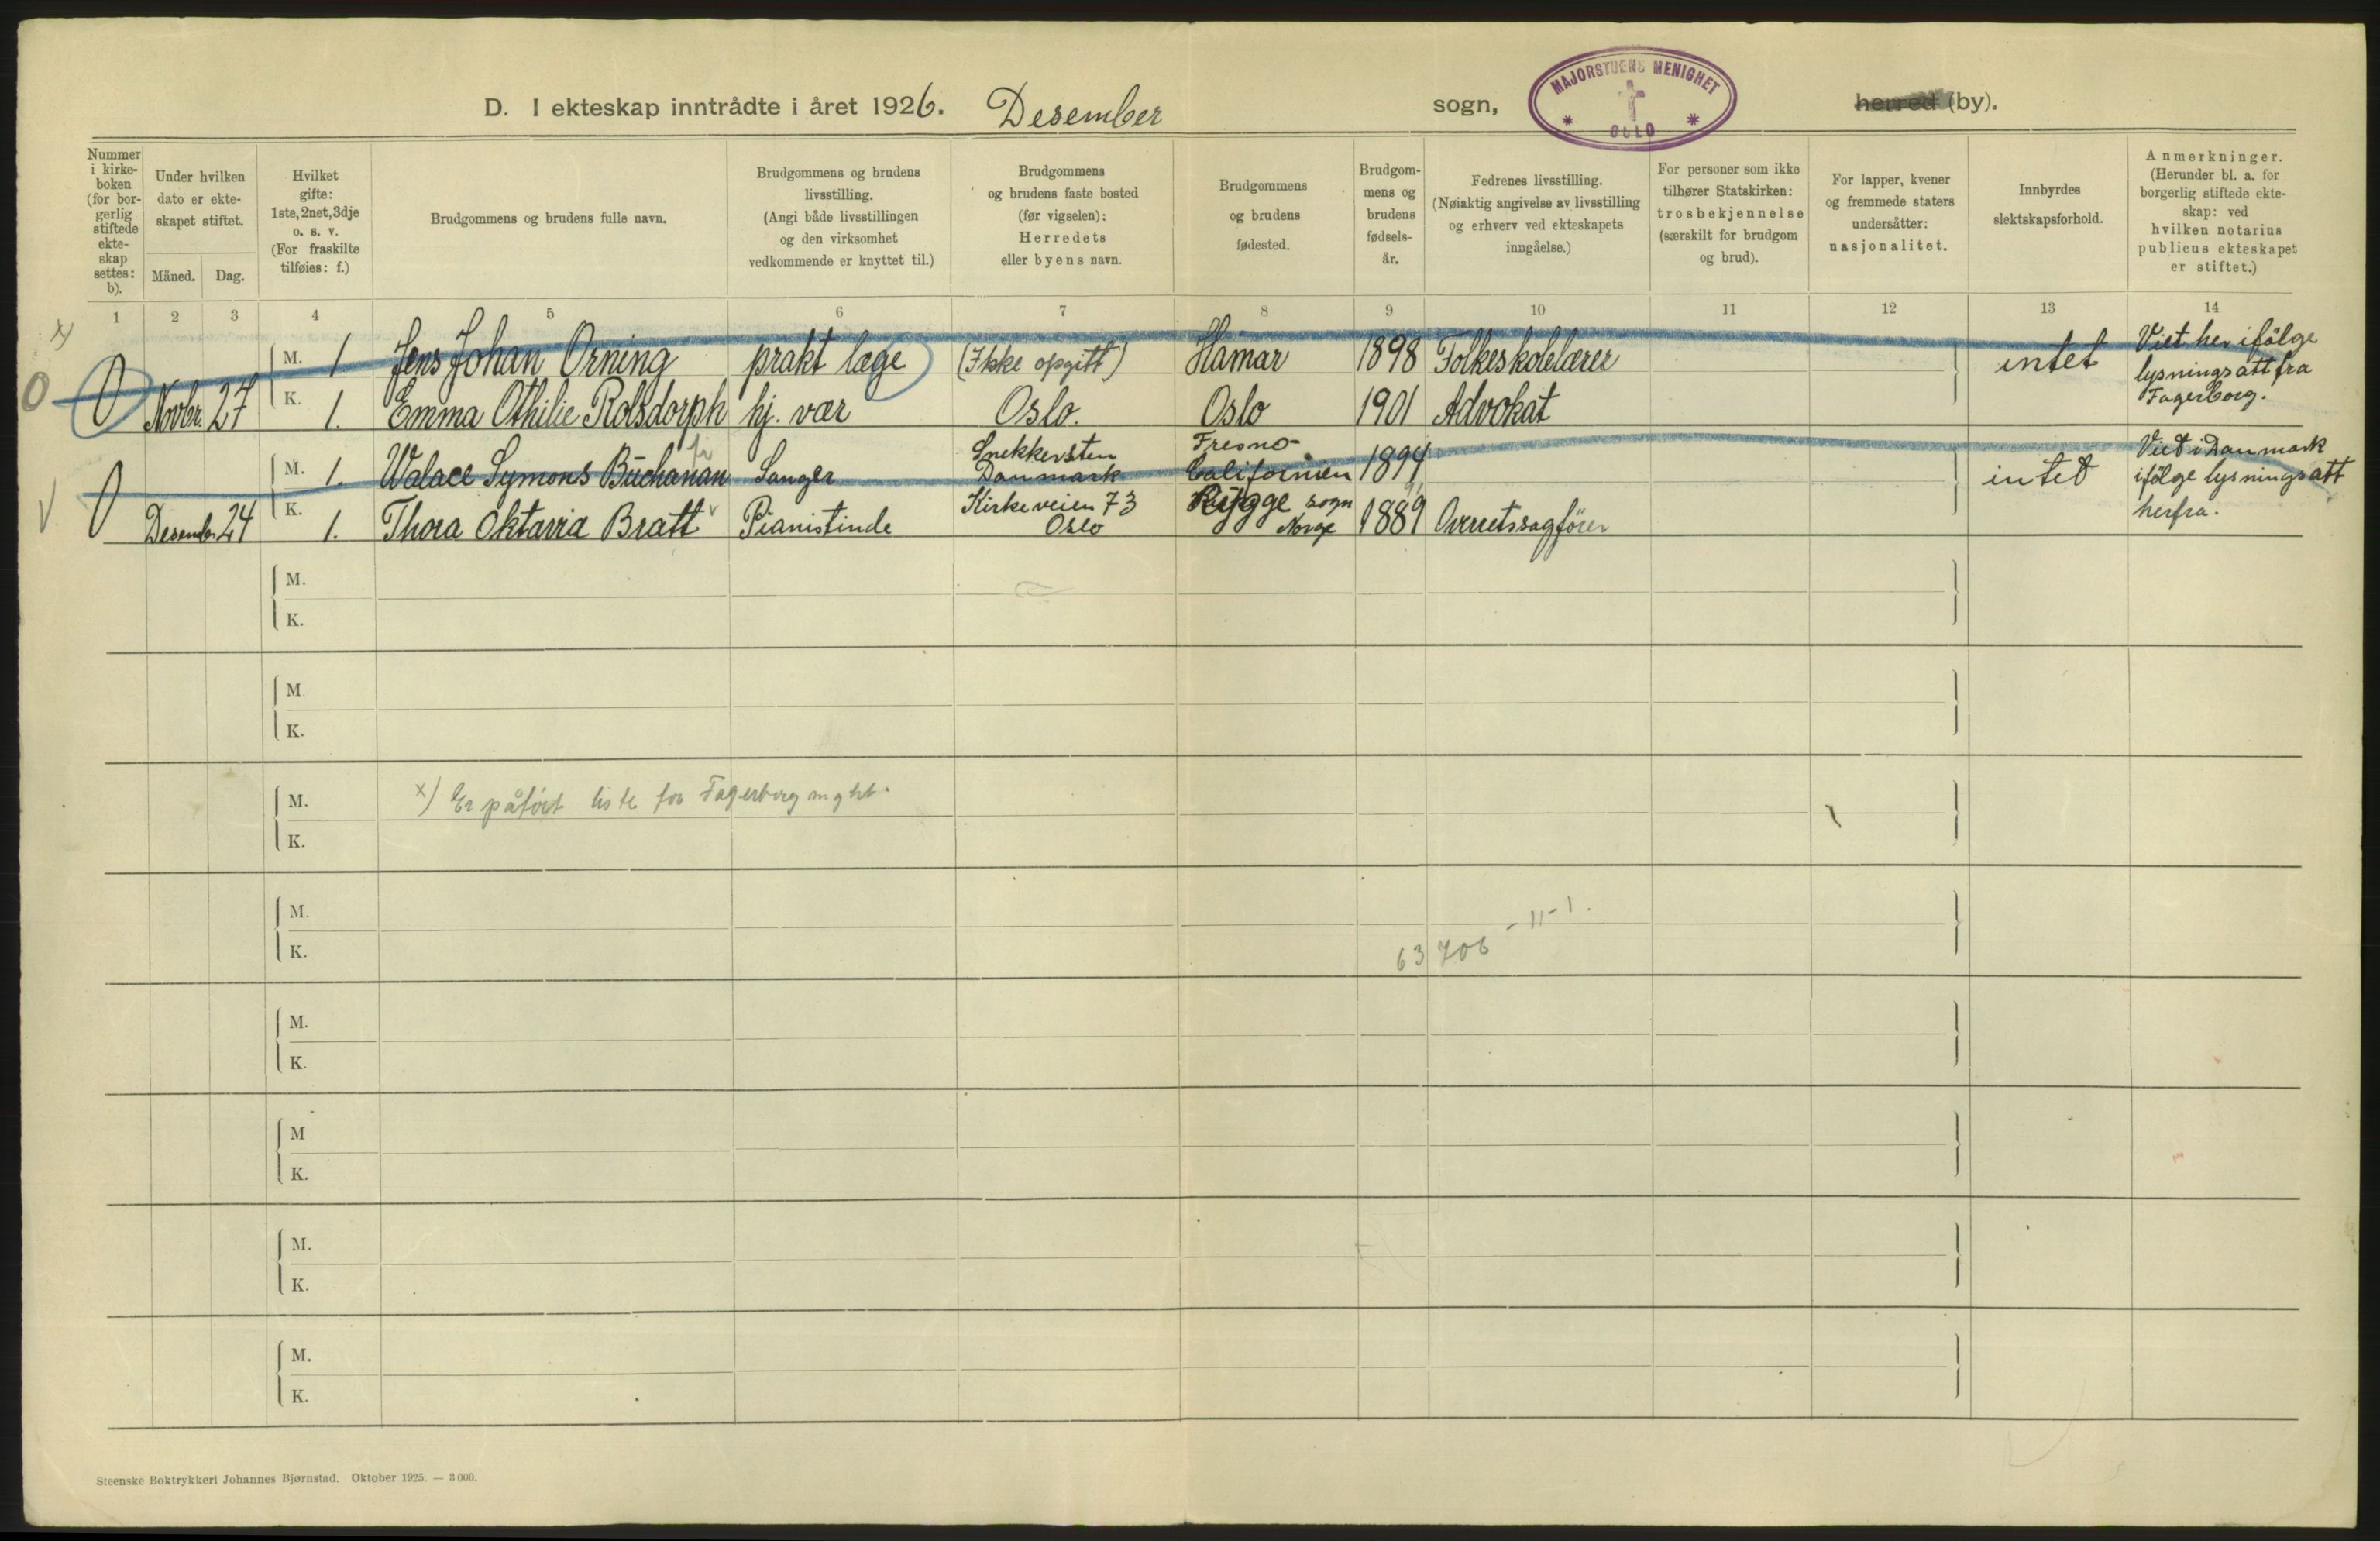 D. I ekteskap inntrådte i året 1926. Desember sogn, herred (by).
MAJORSTUENS MENIGHET
* OSLO *
Nummer i kirke-boken (for bor-gerlig stiftede ekte-skap settes: b).
Under hvilken dato er ekte-skapet stiftet.
Måned. Dag.
Hvilket gifte: 1ste, 2net, 3dje o. s. v. (For fraskilte tilføies: f.)
Brudgommens og brudens fulle navn.
Brudgommens og brudens livsstilling. (Angi både livsstillingen og den virksomhet vedkommende er knyttet til.)
Brudgommens og brudens faste bosted (før vigselen): Herredets eller byens navn.
Brudgommens og brudens fødested.
Brudgom-mens og brudens fødsels-år.
Fedrenes livsstilling. (Nøiaktig angivelse av livsstilling og erhverv ved ekteskapets inngåelse.)
For personer som ikke tilhører Statskirken: trosbekjennelse (særskilt for brudgom og brud).
For lapper, kvener og fremmede staters undersåtter: nasjonalitet.
Innbyrdes slektskapsforhold.
Anmerkninger. (Herunder bl. a. for borgerlig stiftede ekte-skap: ved hvilken notarius publicus ekteskapet er stiftet.)
1 2 3 4 5 6 7 8 9 10 11 12 13 14
x)
0 0 M. 1 Jens Johan Orning prakt læge (Ikke opgitt) Hamar 1898 Folkeskolelærer intet
Novbr. 27 K. 1. Emma Othilie Rolsdorph hj. vær Oslo. Oslo 1901 Advokat
Viet her ifølge
lysningsatt fra
Fagerborg.
0 M. 1. Walace Symons Buchanan Sanger Snekkersten Danmark Fresno Californien 1894 intet
Desember 24 K. 1. Thora Oktavia Bratt Pianistinde Kirkeveien 73 Oslo Rygge sogn Norge 1889 Overretssagfører
Viet i Danmark
ifølge lysningsatt
herfra.
M.
K.
M.
K.
M. x) Er påført liste for Fagerborg mght.
K.
M. - 11-1.
K. 63706
M.
K.
M
K.
M.
K.
M.
K.
Steenske Boktrykkeri Johannes Bjørnstad. Oktober 1925. — 3 000.